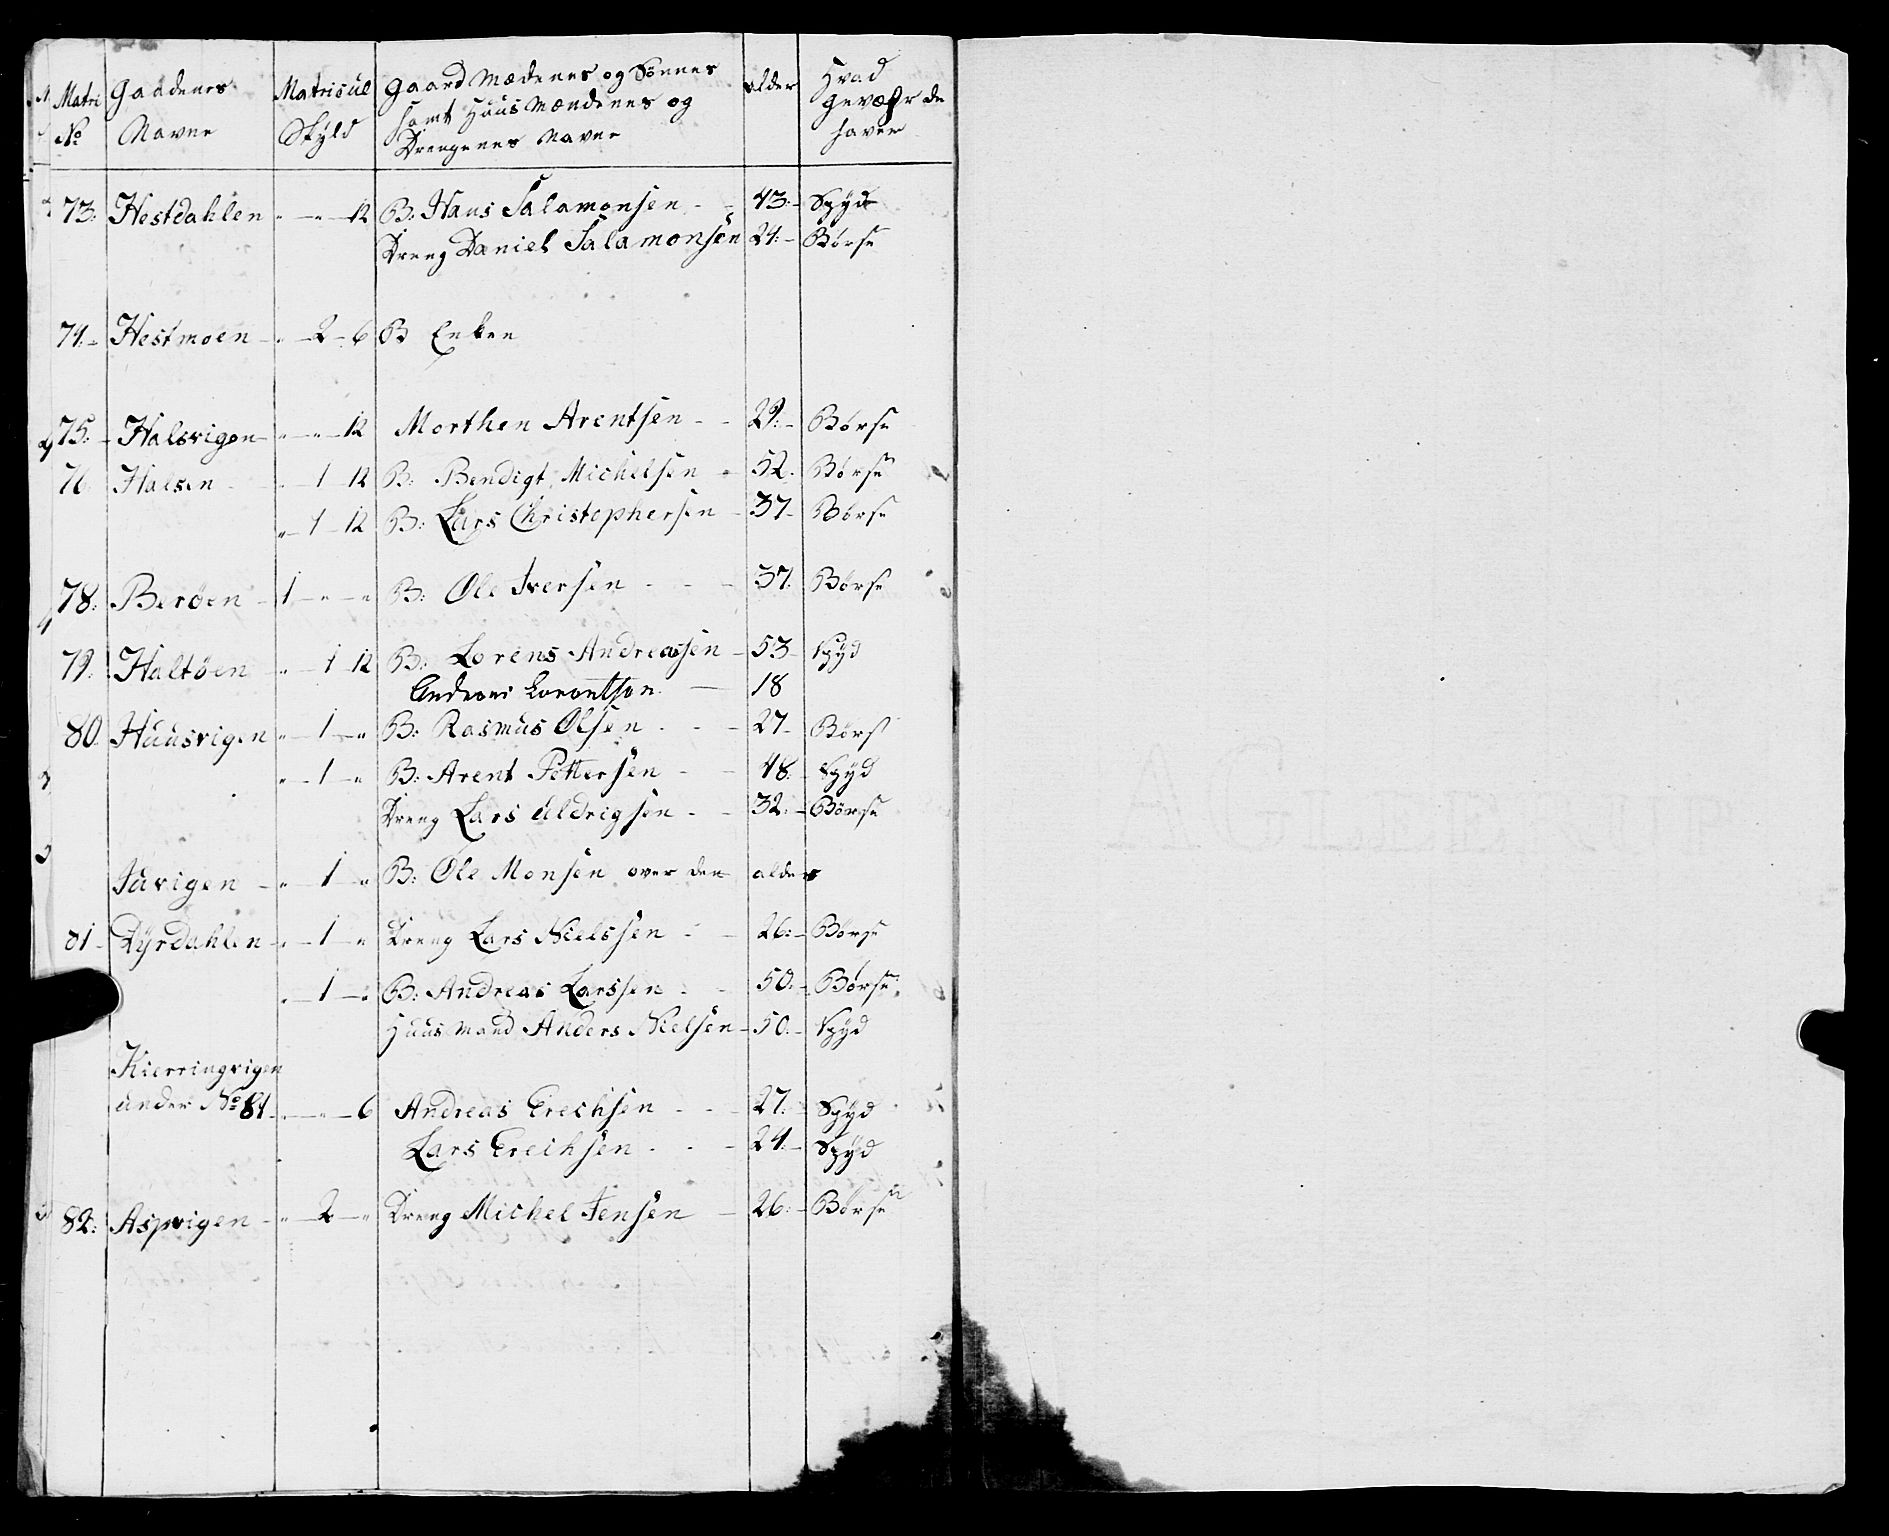 Matri No Gaadenes Navne Matricul Skÿld Gaard Mædenes og Sönnes samt Huus Mændenes og Drengenes Navne alder Hvad Gevæhr de haver
73: Hestdahlen " — " — 12 B: Hans Salamonsen - - 43: - Spÿd
Dreng Daniel Salamonsen 24: - Børse
74. - Hestmoen - " — 2 - 6 B Enken
75: - Halsvigen - " — " — 12 Morthen Arentsen - - 29: - Børse
76 Halsen - " — 1 - 12 B: Bendigt Michelsen - 52. Børse
" — 1 - 12 B: Lars Christophersen - 37 - Børse
78: Berøen - 1 — " — " B: Ole Iversen - - - 37: Børse
79. Haltøen - " — 1 - 12 B: Lorens Andreassen - 53 - Spÿd
Andreas Lorentsen — 18
80. Huusvigen " — 1 — " B: Rasmus Olsen - - - 27 - Børs
" — 1 — " B: Arent Pettersen - - 48: - Spÿd
Dreng Lars Uldrigsen - - 32: - Børse
Juvigen - " — 1 — " B: Ole Monsen over den alder
81 - Dÿrdahlen - " — 1 — " Dreng Lars Nielssen - - 26: - Børse
" — 1 — " B: Andreas Larssen - - 50: - Børse
Huusmand Anders Nielsen - 50: - Spÿd
Kierringvigen
under No 81 - " — " — 6 Andreas Erechsen - - - 27: - Spÿd
Lars Erechsen - - - 24: - Spÿd
82: Aspvigen - " — 2 — " Dreng Michel Jensen - 26: - Børse